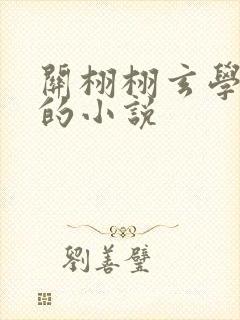 關栩栩玄學
的小說
劉善璧